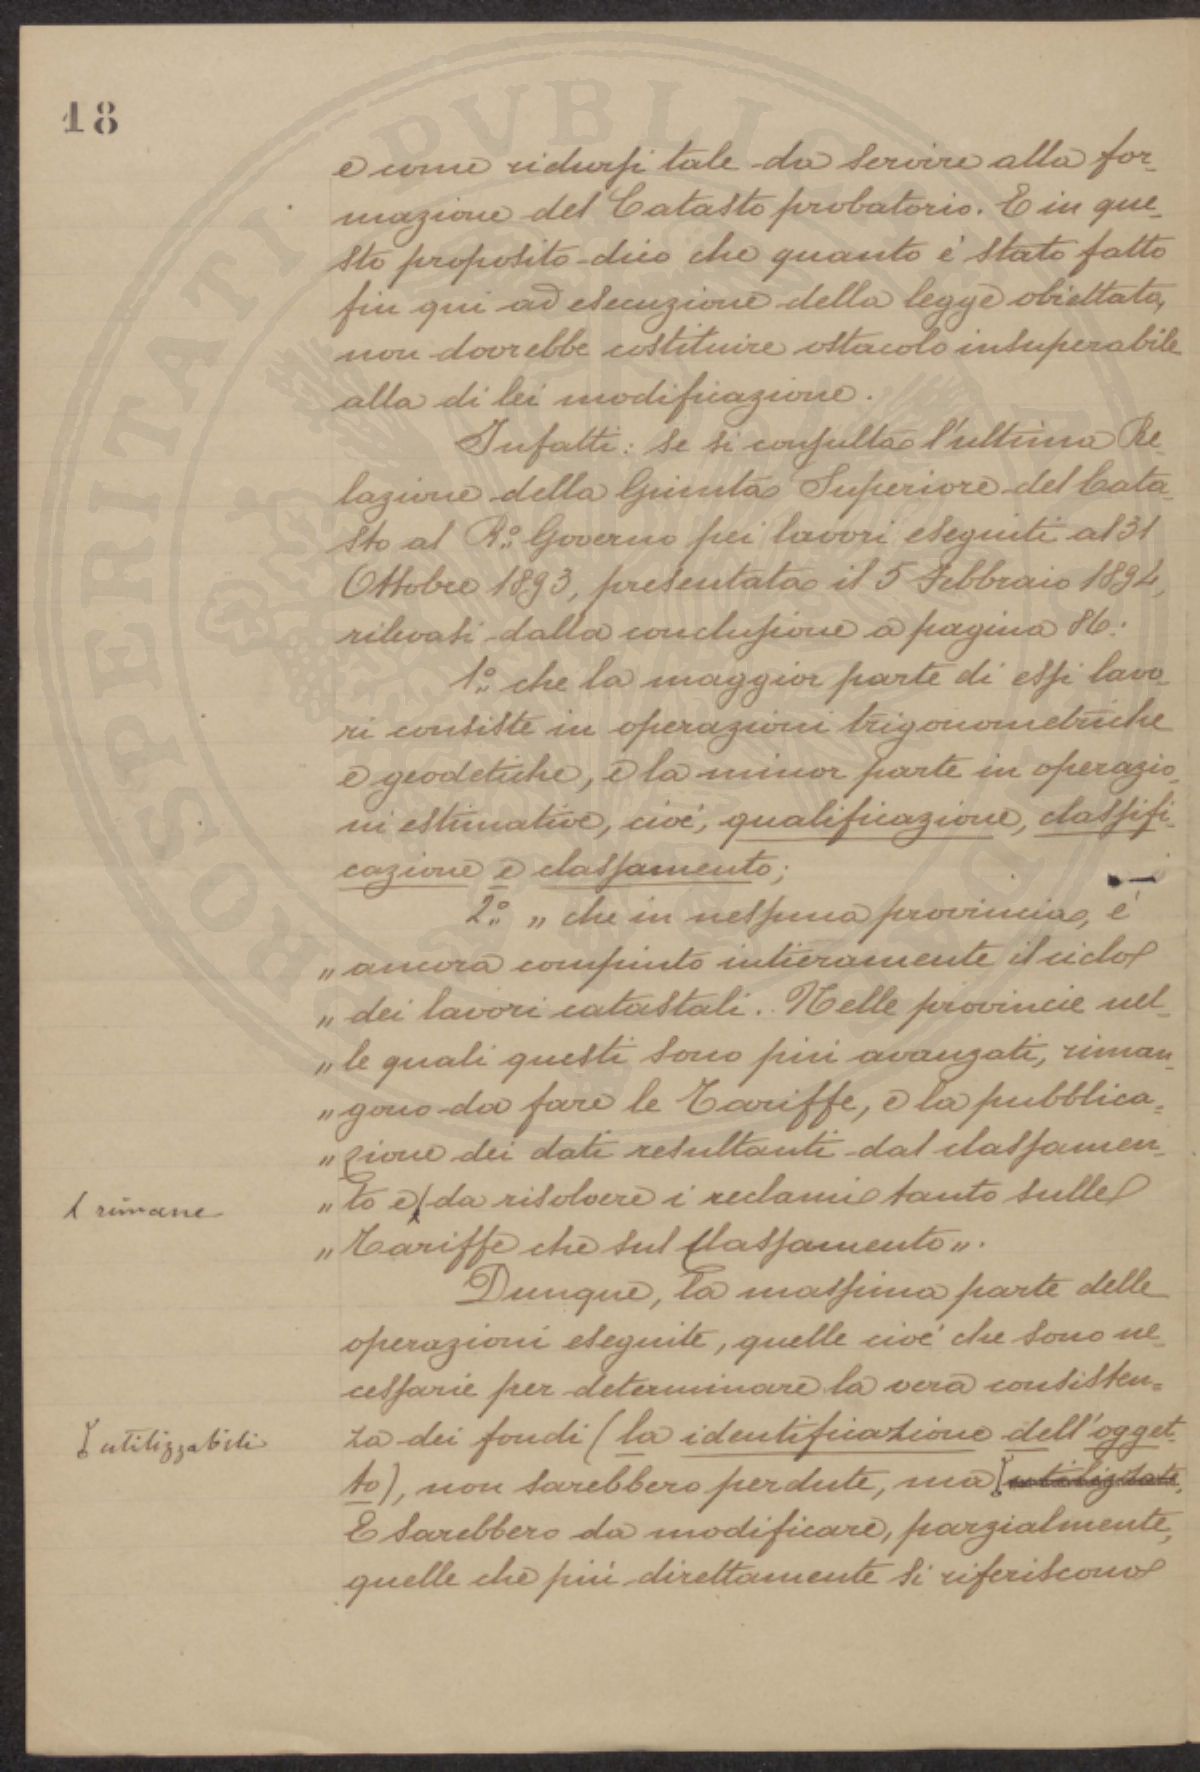 18
e come ridursi tale da servire alla for-
mazione del Catasto probatorio. E in que-
sto proposito dico che quanto è stato fatto
fin qui ad esecuzione della legge obiettata,
non dovrebbe costituire ostacolo insuperabile
alla di lei modificazione.
Infatti: se si consulta l'ultima Re-
lazione della Giunta Superiore del Cata-
sto al R.º Governo pei lavori eseguiti al 31
Ottobre 1893, presentata il 5 Febbraio 1894,
rilevasi dalla conclusione a pagina 86:
1.º che la maggior parte di essi lavo-
ri consiste in operazioni trigonometriche
e geodetiche, e la minor parte in operazio-
ni estimative, cioè, qualificazione, classifi-
cazione e classamento;
2.º „ che in nessuna provincia, è
„ ancora compiuto intieramente il ciclo
„ dei lavori catastali. Nelle provincie nel-
„ le quali questi sono più avanzati, riman-
„ gono da fare le Tariffe, e la pubblica=
„ zione dei dati resultanti dal classamen-
rimane
„ to e da risolvere i reclami tanto sulle
„ Tariffe che sul Classamento„.
Dunque, la massima parte delle
operazioni eseguite, quelle cioè che sono ne-
cessarie per determinare la vera consisten=
utilizzabili
za dei fondi (la identificazione dell'ogget-
to), non sarebbero perdute, ma utilizzate,
E sarebbero da modificare, parzialmente,
quelle che più direttamente si riferiscono
PROSPERITATI PVBLICAE